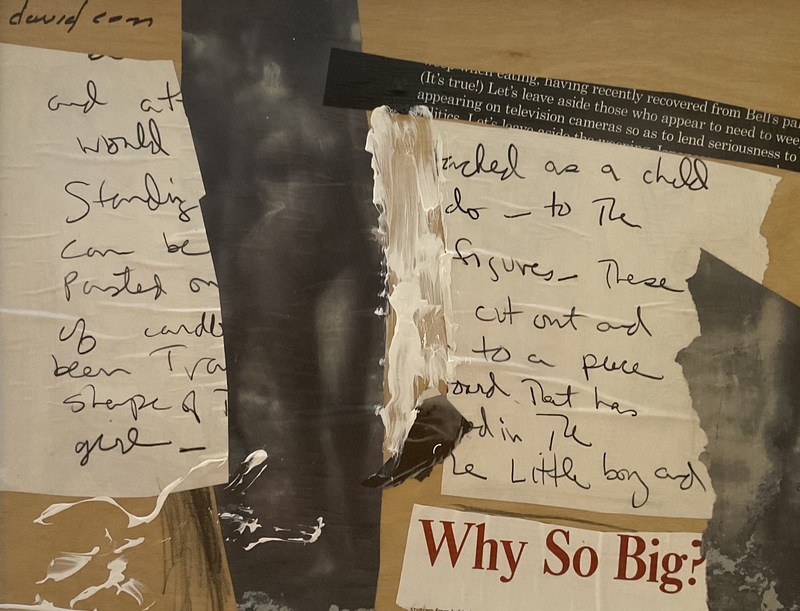 david com
and att
world
Standing
can be
Pasted on
of cardb
been Tra
shape of T
girl —
weep when eating, having recently recovered from Bell's pa
(It's true!) Let's leave aside those who appear to need to wee
appearing on television cameras so as to lend seriousness to
litics. Let's leave aside the
ached as a child
do — to The
figures — These
cut out and
to a piece
oard. That has
ed in The
he Little boy and
Why So Big?